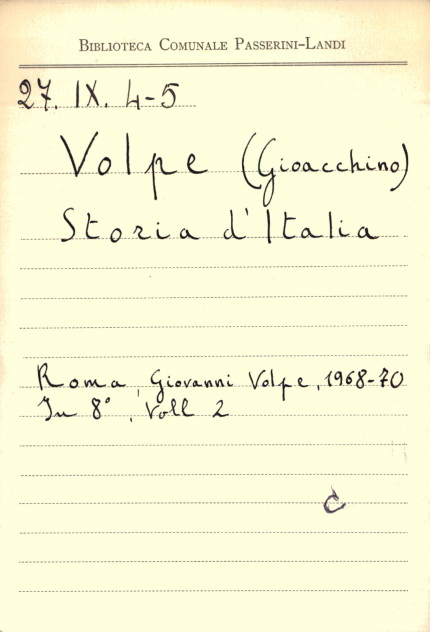 BIBLIOTECA COMUNALE PASSERINI-LANDI
27. IX. 4-5
Volpe (Gioacchino)
Storia d'Italia
Roma, Giovanni Volpe, 1968-70
In 8°, Voll 2
C